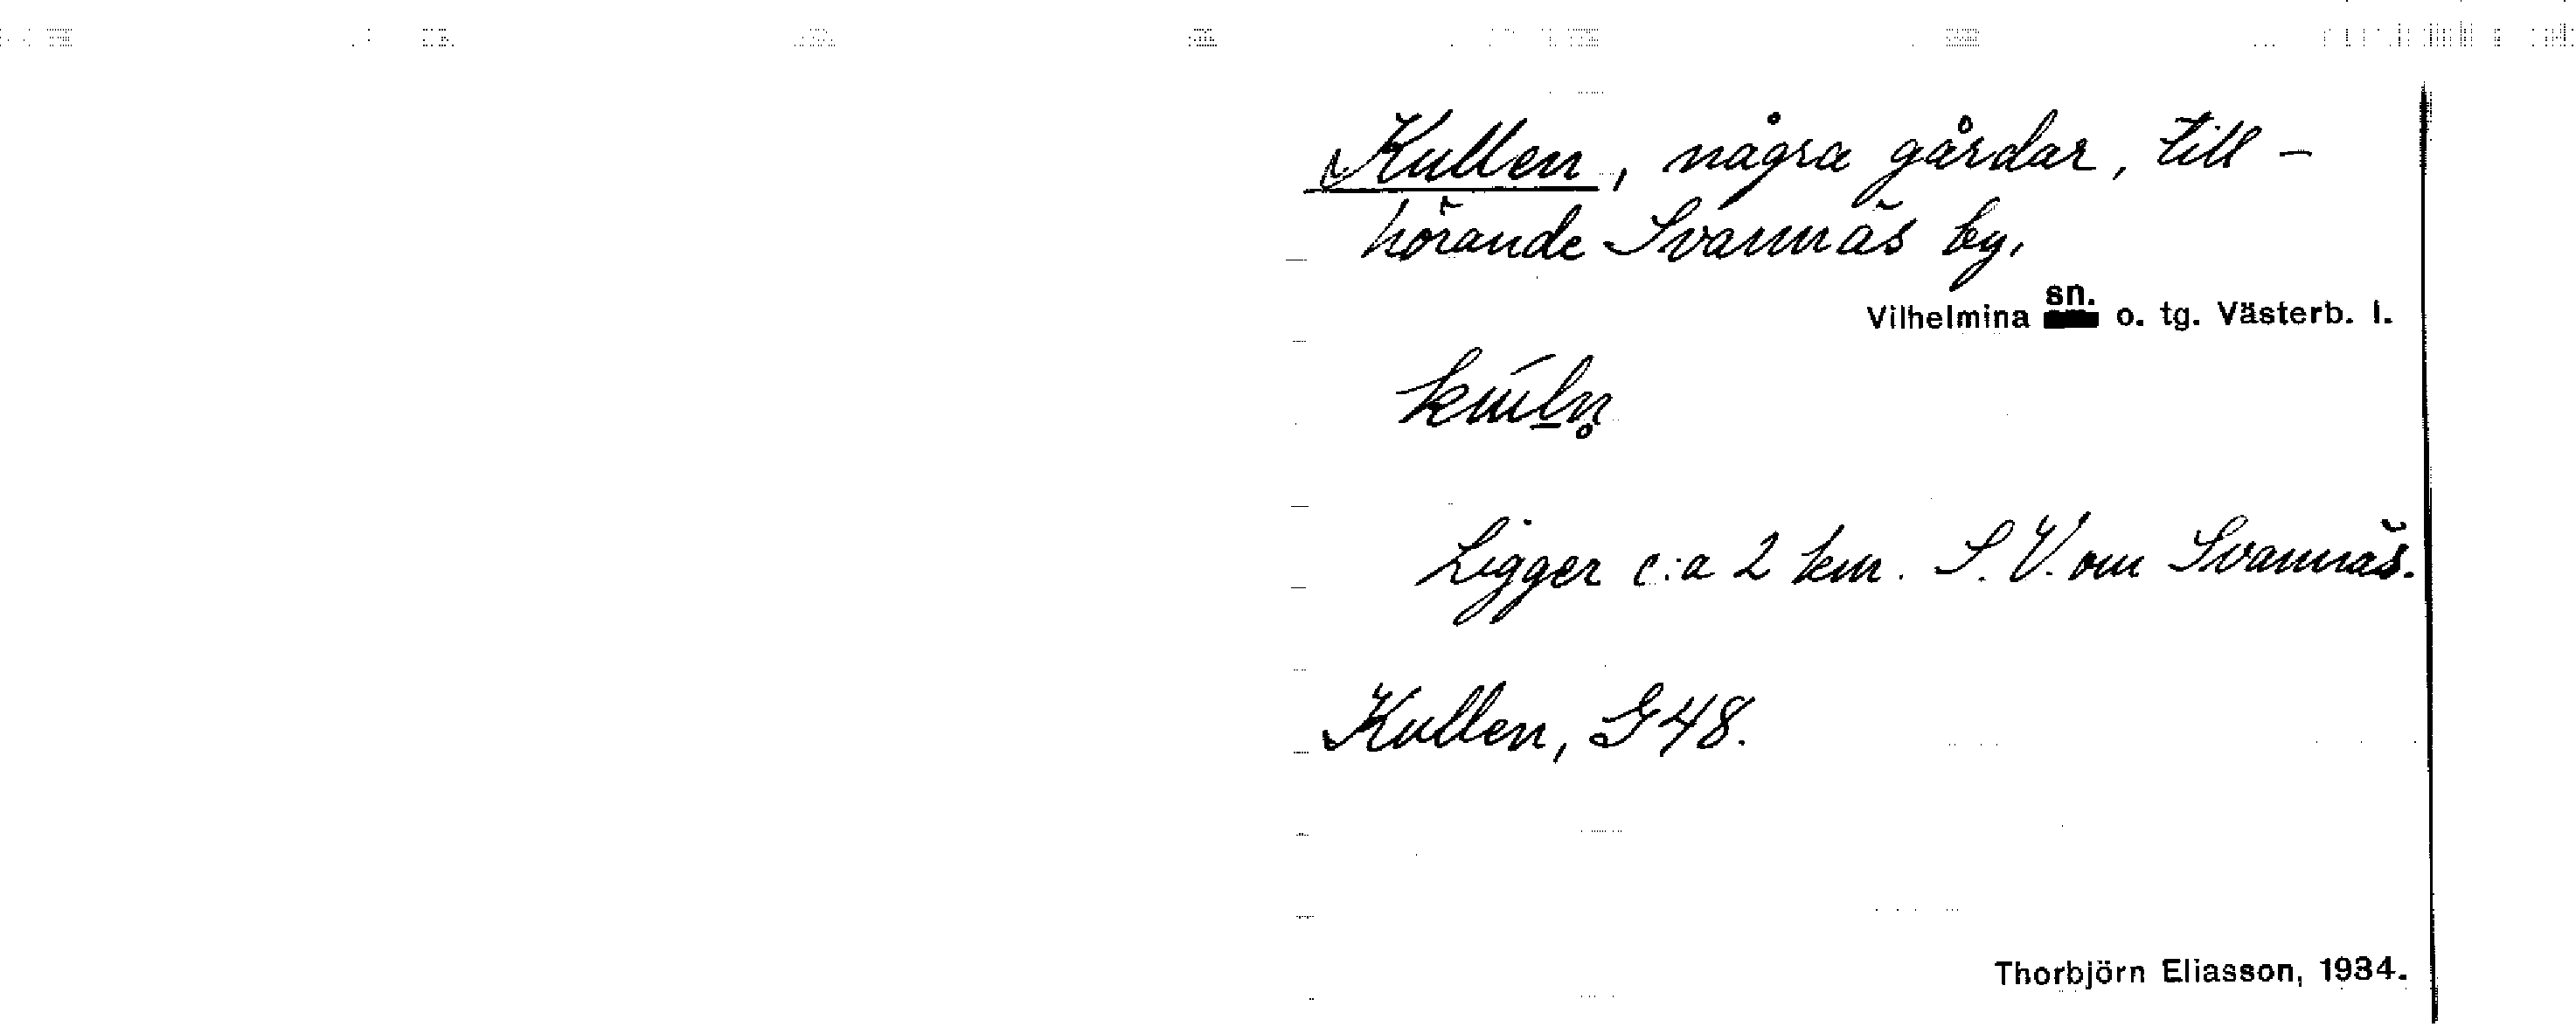 Kullen, några gårdar, till-
hörande Svannäs by.
Vilhelmina sn. o. tg. Västerb. l.
Ligger c:a 2 km. S.V. om Svannäs.
Kullen, G48.
Thorbjörn Eliasson, 1934.